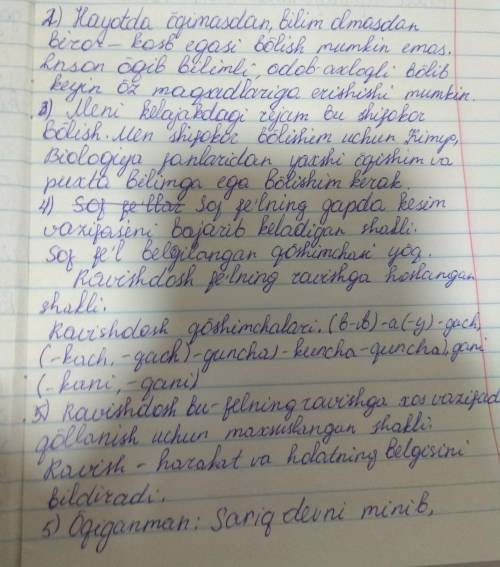 2) Hayotda õqimasdan, bilim olmasdan
biror-kasb egasi bõlish mumkin emas.
Inson õqib bilimli, odob-axloqli bõlib
keyin õz maqsadlariga erishishi mumkin.
3) Meni kelajakdagi rejam bu shifokor
bõlish. Men shifokor bõlishim uchun Kimyo,
Biologiya fanlaridan yaxshi õqishim va
puxta bilimga ega bõlishim kerak.
4) Sof fe'llar Sof fe'lning gapda kesim
vazifasini bajarib keladigan shakli.
Sof fe'l belgilangan qõshimchasi yõq.
Ravishdosh fe'lning ravishga hoslangan
shakli.
Ravishdosh qõshimchalari. (b-ib)-a(-y)-gach,
(-kach, -qach)-guncha)-kuncha-quncha), gani
(-kani, -qani)
5) Ravishdosh bu-felning ravishga xos vazifad
qõllanish uchun maxsuslangan shakli.
Ravish - harakat va holatning belgisini
bildiradi.
5) Õqiganman: Sariq devni minib,